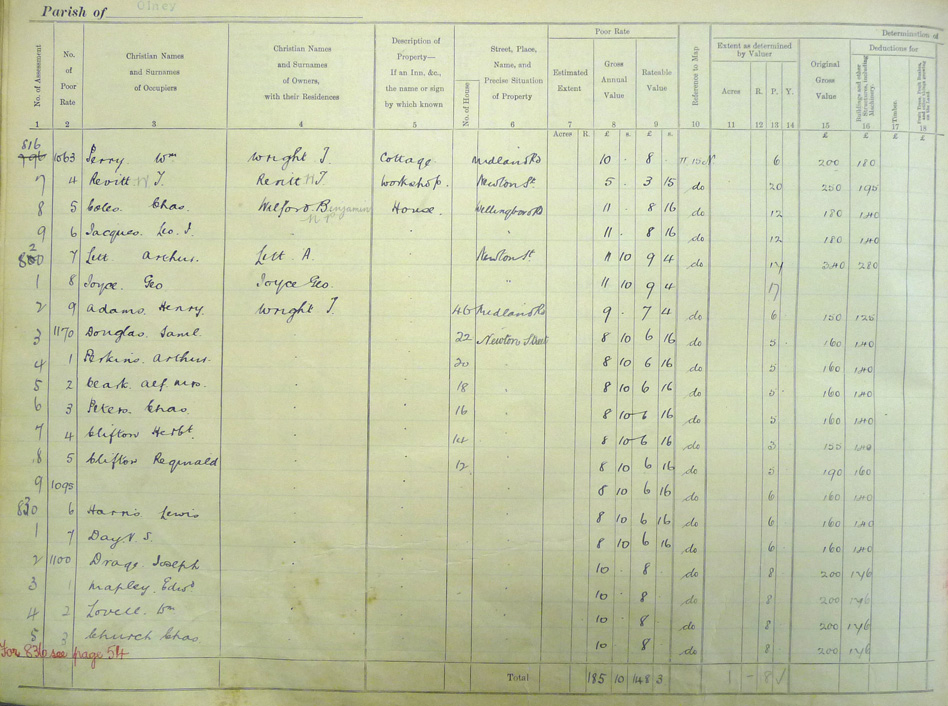 Parish of Olney
Determination of
No. of Assessment
No. of Poor Rate
Christian Names and Surnames of Occupiers
Christian Names and Surnames of Owners, with their Residences
Description of Property— If an Inn, &c., the name or sign by which known
No. of House
Street, Place, Name, and Precise Situation of Property
Poor Rate
Estimated Extent
Gross Annual Value
Rateable Value
Reference to Map
Extent as determined by Valuer
Acres R. P. Y.
Original Gross Value
Deductions for
Buildings and other Structures, including Machinery.
Timber.
1 2 3 4 5 6 7 8 9 10 11 12 13 14 15 16 17 18
Acres R. £ s. £ s. £ £ £ £
816 1063 Perry Wm Wright J. Cottage. Midland Rd 10 . 8 . 6 200 180
7 4 Revitt W J. Revitt W J. Workshop. Newton St 5 . 3 15 do 20 250 195
8 5 Coles Chas. Welford B enjamin House. Wellingboro Rd 11 . 8 16 do 12 180 140
9 6 Jacques. Leo. J. 11 . 8 16 do 12 180 140
7 Lett Arthur. Lett A. Newton St 11 10 9 4 do 340 280
1 8 Joyce. Geo Joyce Geo. " 11 10 9 4 17
2 9 Adams. Henry. Wright J. 46 Midland Rd 9 . 7 4 do 6 150 125
3 1170 Douglas. Saml. 22 Newton Street 8 10 6 16 do 5 160 140
4 1 Perkins. Arthur. 20 8 10 6 16 do 5 160 140
5 2 Alf Mrs. 18 8 10 6 16 do 5 160 140
6 3 Peters. Chas 16 8 10 6 16 do 5 160 140
7 4 Clifton Herbt. 14 8 10 6 16 do 155 140
8 5 Clifton Reginald 12 8 10 6 16 do 5 190 160
9 1095 8 10 6 16 do 6 160 140
830 6 Harris Lewis 8 10 6 16 do 6 160 140
1 7 Day V. S. 8 10 6 16 do 6 160 140
2 1100 Drage Joseph 10 . 8 do 8 200 176
3 1 Mapley. Edwd 10 8 do 8 200 176
4 2 Lovell. Wm 10 8 do 8 200 176
5 3 Church Chas 10 8 do 8 200 176
For 836 see page 54
Total 185 10 148 3 1 - 8 ✓